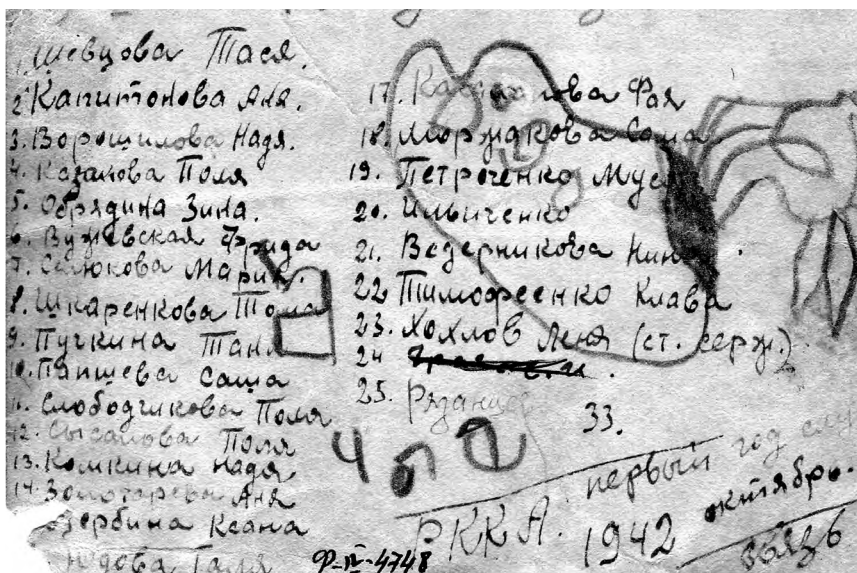 1. Шевцова Тася.
2. Капитонова Аня.
3. Ворошилова Надя.
4. Казакова Поля
5. Обрядина Зина.
6. Вужевская Фрида
7. Мария.
8. Шкаренкова Тома
9. Пучкина Таня
10. Папшева Саша
11. Слободчикова Поля
12. Сысалова Поля
13. Комкина Надя
14. Золотарева Аня
Ксана
Галя
17. Фая
18. Саша
19. Петроченко Муся
20. Ильиченко
21. Ведерникова Нина.
22 Тимофеенко Клава
23. Хохлов Леня (ст. серж.)
24
25. Рязанцев
33.
РККА. первый год
1942 октябрь.
связь
Ф-IV-4748